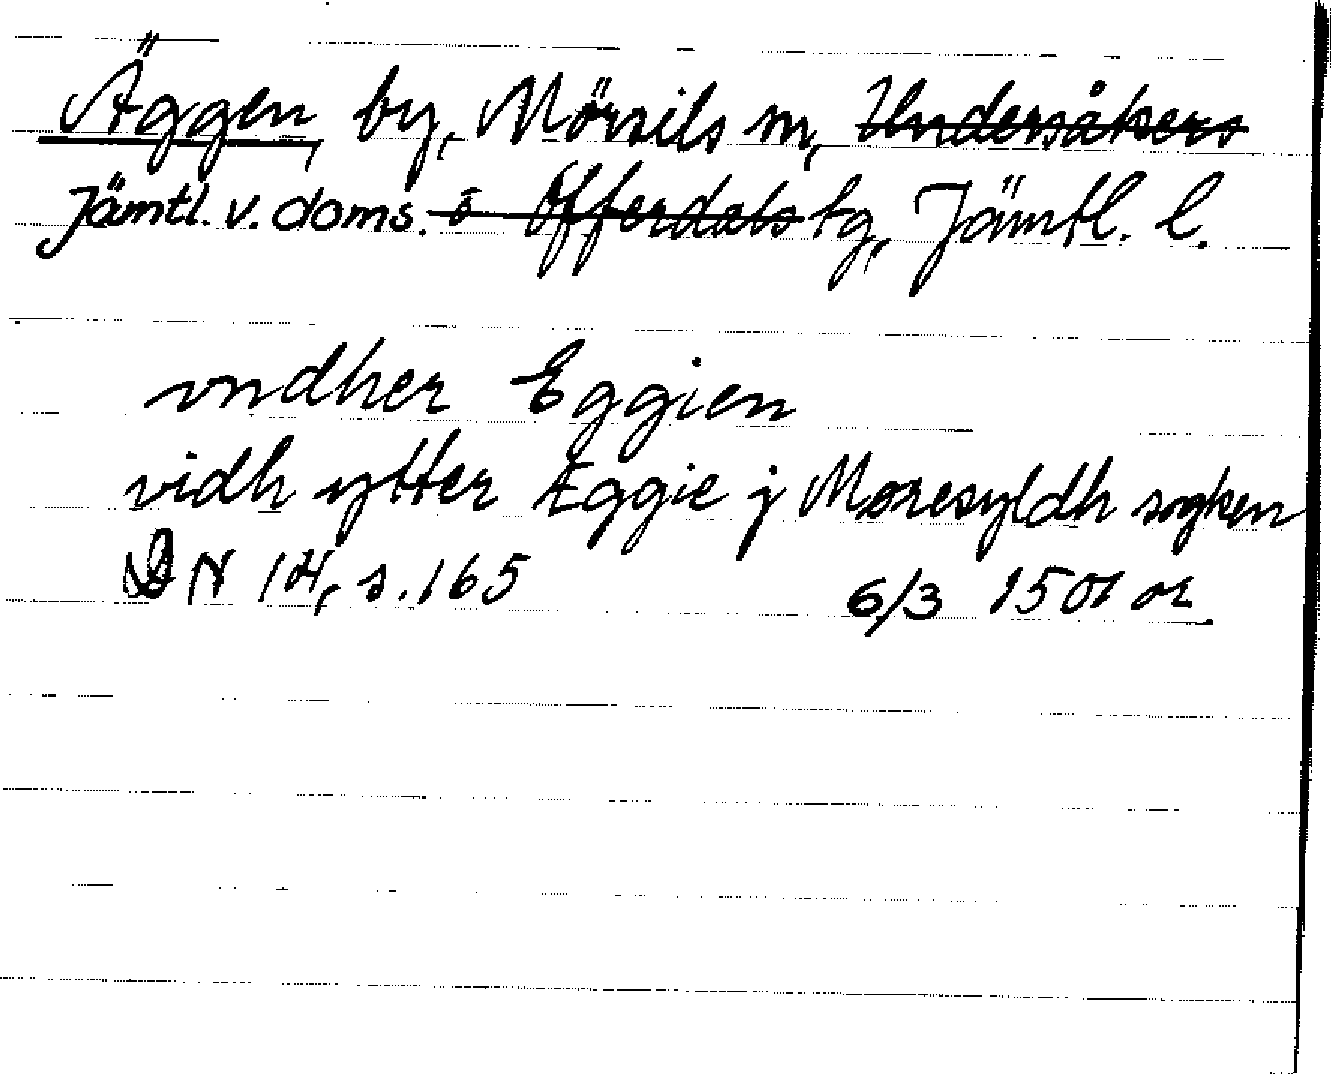 Äggen, by, Mörsils sn, Undersåkers
Jämtl. v. doms. o Offerdals tg, Jämtl. l.
vndher Eggien
vidh ytter Eggie j Moresyldh sogken
DN 14, s. 165 6/3 1501 or.